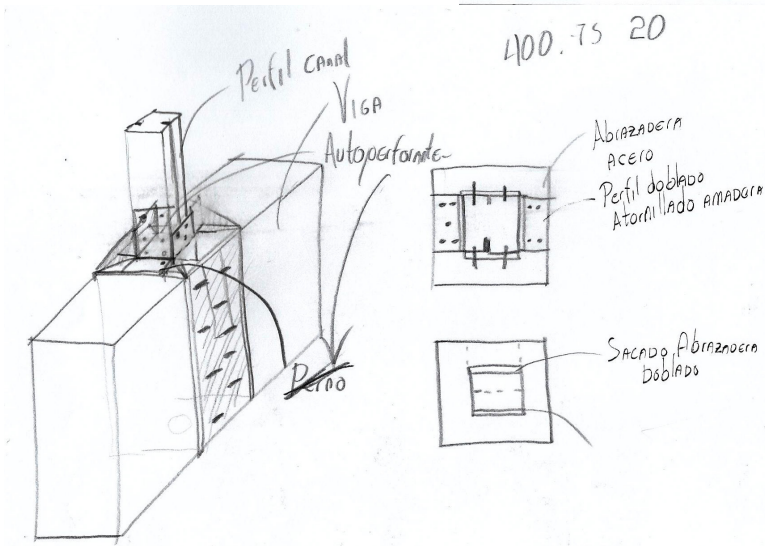 400. 75 20
Perfil CANAL
VIGA
Autoperforante
Perno
Abrazadera
acero
Perfil doblado
Atornillado amadera
Sacado Abrazadera
doblado